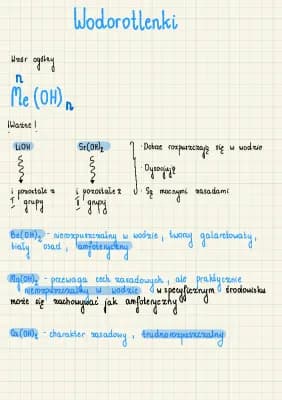 Wodorotlenki
Wzór ogólny
n
Me (OH)n
!Ważne!
LiOH
Sr(OH)2
· Dobrze rozpuszczają się w wodzie
· Dysocjują
· Są mocnymi zasadami
i pozostałe z I grupy
i pozostałe z II grupy
Be(OH)2 - nierozpuszczalny w wodzie, tworzy galaretowaty,
biały osad, amfoteryczny
Mg(OH)2 - przewaga cech zasadowych, ale praktycznie
nierozpuszczalny w wodzie w specyficznym środowisku
może się zachowywać jak amfoteryczny
Ca(OH)2 - charakter zasadowy, trudnorozpuszczalny